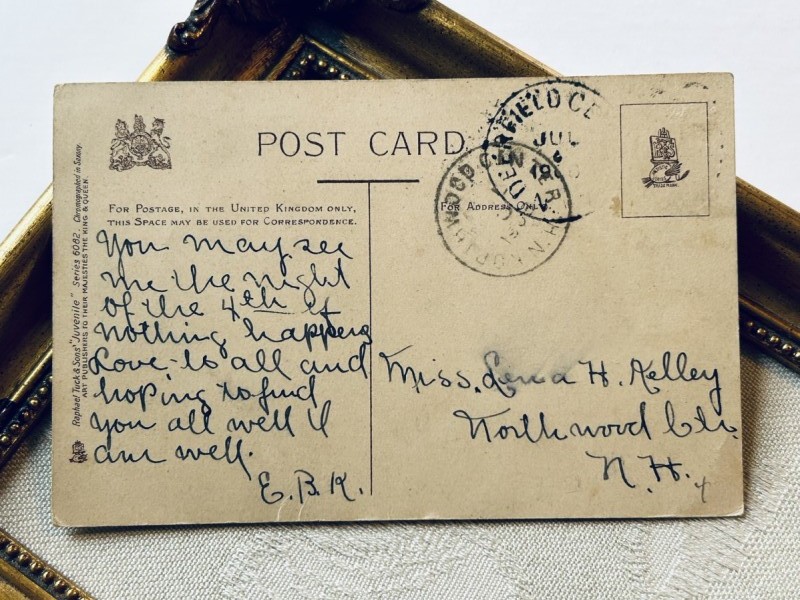 POST CARD
FOR POSTAGE, IN THE UNITED KINGDOM ONLY,
THIS SPACE MAY BE USED FOR CORRESPONDENCE.
FOR ADDRESS ONLY.
Raphael Tuck & Sons' "Juvenile" Series 6082. Chromographed in Saxony.
ART PUBLISHERS TO THEIR MAJESTIES THE KING & QUEEN.
DEERFIELD CE
JUL
TRADE MARK.
You may see
me the night
of the 4th if
nothing happens
Love to all and
hoping to find
you all well I
am well.
E.B.K.
Miss. Lena H. Kelley
Northwood Ctr.
N.H.